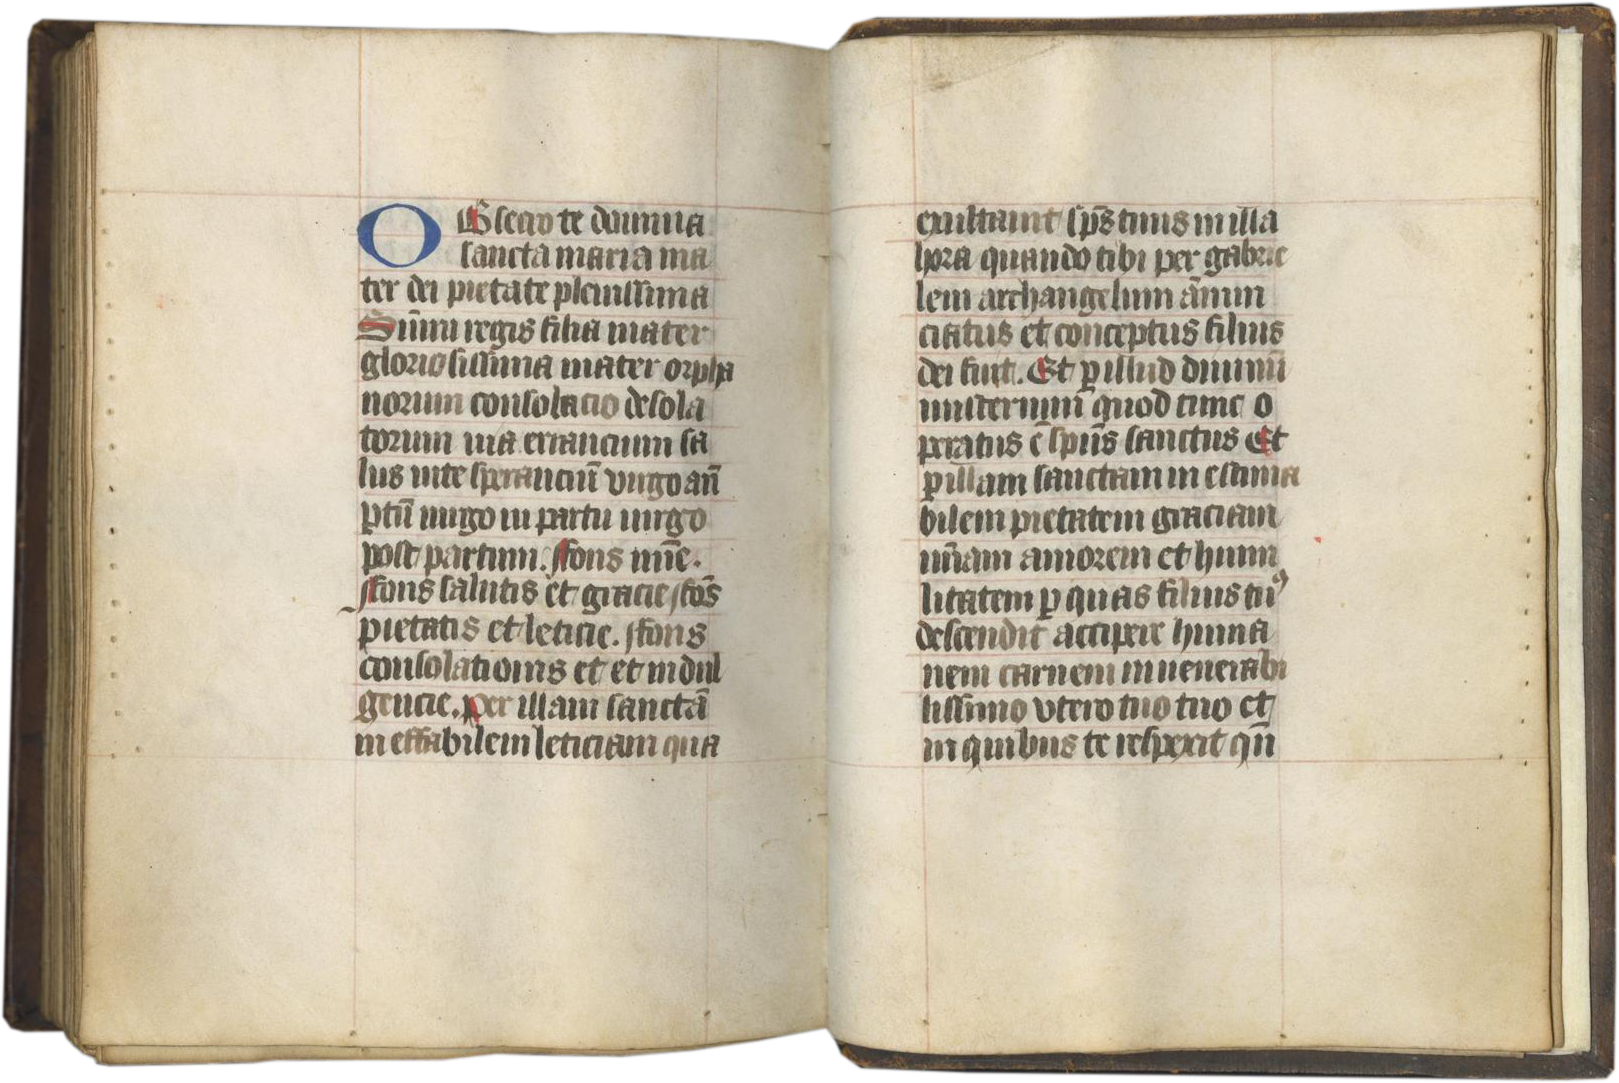 OBsecro te domina
sancta maria ma
ter dei pietate plenissima
Sūmi regis filia mater
gloriosissima mater orpha
norum consolacio desola
torum uia errancium sa
lus inte speranciū virgo an̄
ꝑtū uirgo in partu uirgo
post partum. ffons mīe.
ffons salutis et gracie ffōs
pietatis et leticie. ffons
consolationis et et indul
gencie. Per illam sanctā
in effabilem leticiam qua
exultauit sp̄s tuus in illa
hora quando tibi per gabrie
lem archangelum ānun
ciatus et conceptus filius
dei fuit. Et ꝑ illud diuinū
misterium quod tunc o
peratus ē spūs sanctus Et
ꝑ illam sanctam in estima
bilem pietatem graciam
mīam amorem et humi
litatem ꝑ quas filius tuꝰ
descendit accipere huma
nem carnem in uenerabi
lissimo vtero tuo tuo et
in quibus te respexit qn̄